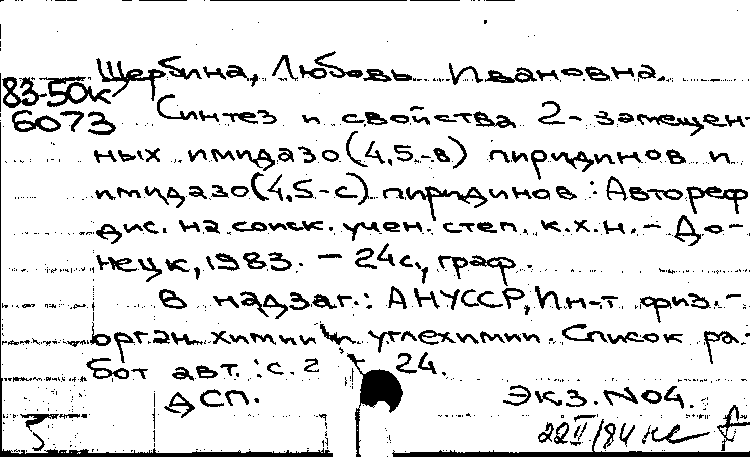 Щербина, Любовь Ивановна.
83-50к
6073
Синтез и свойства 2-замещен-
ных имидазо(4,5-в) пиридинов и
имидазо(4,5-с) пиридинов: Автореф
дис. на соиск. учен. степ. к.х.н. - До-
нецк, 1983. - 24 с., граф.
В надзаг.: АН УССР, Ин-т физ.-
орган. химии и углехимии. Список ра-
бот авт.: с. 24.
ДСП.
Экз. N04.
5
22II/84